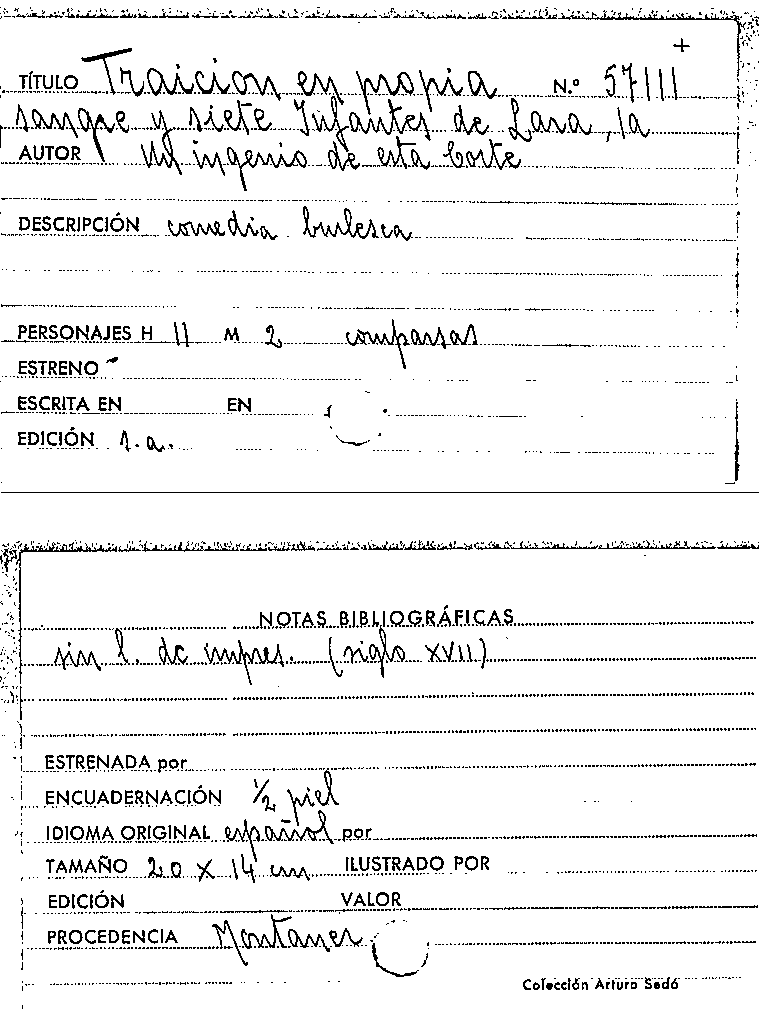 +
TÍTULO Traicion en propia N.º 57111
sangre y siete Infantes de Lara, la
AUTOR Un ingenio de esta Corte
DESCRIPCIÓN comedia burlesca
PERSONAJES H 11 M 2 comparsas
ESTRENO
ESCRITA EN EN
EDICIÓN s.a.
NOTAS BIBLIOGRÁFICAS
sin l. de impres. (siglo XVII)
ESTRENADA por
ENCUADERNACIÓN 1/2 piel
IDIOMA ORIGINAL español por
TAMAÑO 20 x 14 cm ILUSTRADO POR
EDICIÓN VALOR
PROCEDENCIA Montaner
Colección Arturo Sedó